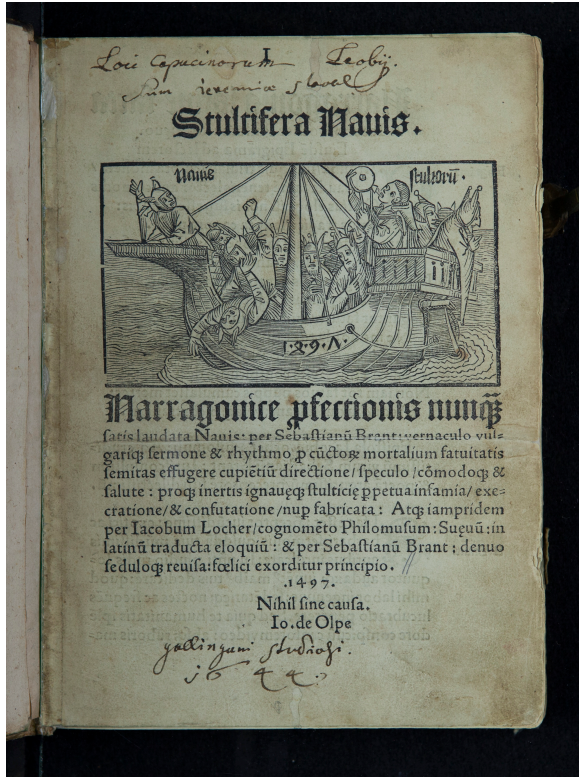 I
Loci Capucinorum Leobij.
Sum
Stultifera Nauis.
Nauis stultorū.
1.4.9.7.
Narragonice ꝓfectionis nunꝗ̃
satis laudata Nauis: per Sebastianū Brant: vernaculo vul-
gariqꝫ sermone & rhythmo ꝓ cūctoꝝ mortalium fatuitatis
semitas effugere cupiētiū directione/speculo/cōmodoqꝫ &
salute: proqꝫ inertis ignauęqꝫ stulticię ꝑpetua infamia/exe-
cratione/& confutatione/nuꝑ fabricata: Atqꝫ iampridem
per Iacobum Locher/cognomēto Philomusum: Suęuū: in
latinū traducta eloquiū: & per Sebastianū Brant: denuo
seduloqꝫ reuisa: fœlici exorditur principio.
.1497.
Nihil sine causa.
Io. de Olpe
studiosi.
1644.